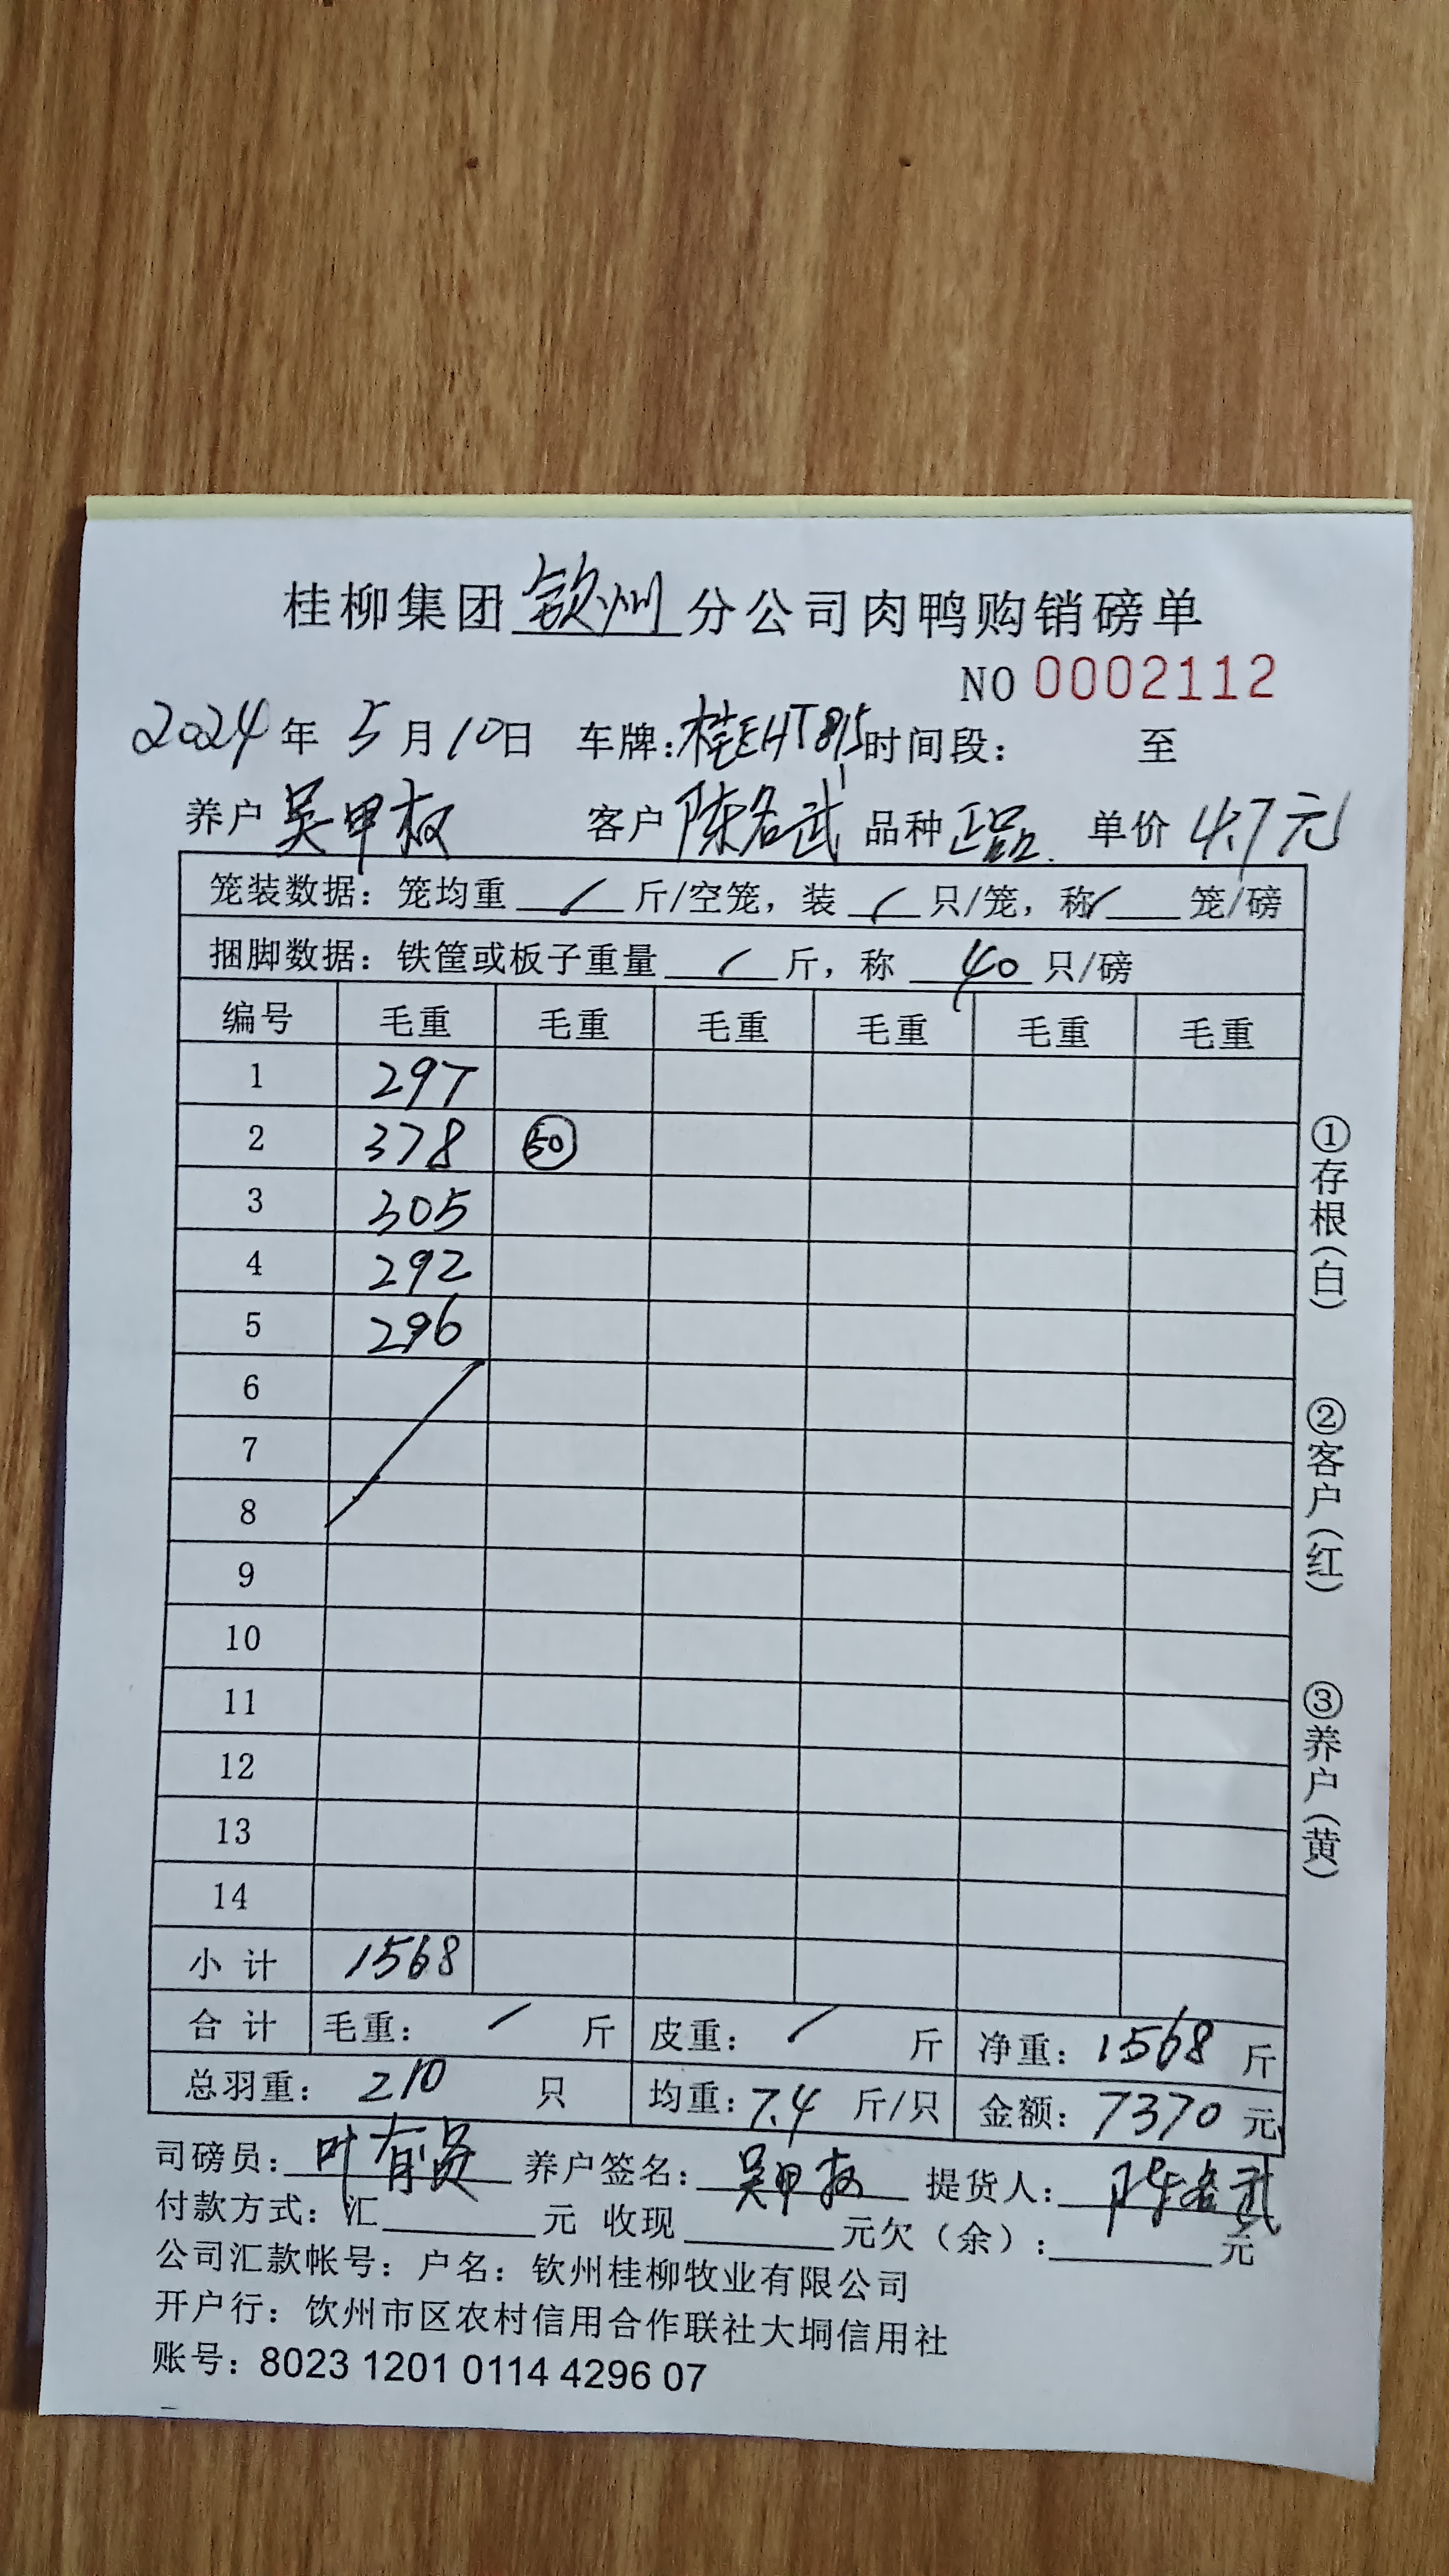 桂柳集团钦州分公司肉鸭购销磅单
NO 0002112
2024年5月10日 车牌:桂EHT815时间段: 至
养户吴甲权 客户陈名武 品种正品. 单价4.7元
笼装数据:笼均重/斤/空笼,装/只/笼,称/笼/磅
捆脚数据:铁筐或板子重量/斤,称40只/磅
编号 毛重 毛重 毛重 毛重 毛重 毛重
1 297
2 378 50
3 305
4 292
5 296
6
7
8
9
10
11
12
13
14
小计 1568
合计 毛重:/斤 皮重:/斤 净重:1568斤
总羽重:210只 均重:7.4斤/只 金额:7370元
司磅员:叶有贤 养户签名:吴甲权 提货人:陈名武
付款方式:汇 元 收现 元欠(余): 元
公司汇款帐号:户名:钦州桂柳牧业有限公司
开户行:钦州市区农村信用合作联社大垌信用社
账号:8023 1201 0114 4296 07
①存根(白)
②客户(红)
③养户(黄)